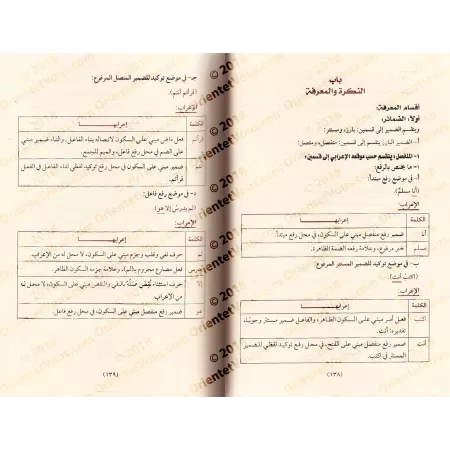 باب
النكرة والمعرفة
أقسام المعرفة:
أولاً: الضمائر:
وينقسم الضمير إلى قسمين: بارز، ومستتر:
أ- الضمير البارز ينقسم إلى قسمين: منفصل، ومتصل:
١- المنفصل: ينقسم حسب موقعه الإعرابي إلى قسمين:
١- ما يختص بالرفع:
أ- في موضع رفع مبتدأ:
(أنا مسلمٌ).
الإعراب:
الكلمة إعرابها
أنا ضمير رفع منفصل مبني على السكون، في محل رفع مبتدأ.
مسلم خبر مرفوع، وعلامة رفعه الضمة الظاهرة.
ب- في موضع توكيد للضمير المستتر المرفوع:
(اكتبْ أنت).
الإعراب:
الكلمة إعرابها
اكتب فعل أمر مبني على السكون الظاهر، والفاعل ضمير مستتر وجوبًا،
تقديره: أنت.
أنت ضمير رفع منفصل مبني على الفتح، في محل رفع توكيد لفظي للضمير
المستتر في اكتب.
(١٣٨)
جـ- في موضع توكيد للضمير المتصل المرفوع:
(قرأتم أنتم).
الإعراب:
الكلمة إعرابها
قرأتم فعل ماض مبني على السكون لاتصاله بتاء الفاعل. والتاء: ضمير مبني
على الضم في محل رفع فاعل، والميم للجمع.
ضمير رفع مبني على السكون في محل رفع توكيد لفظي لتاء الفاعل في الفعل
قرأتم.
د- في موضع رفع فاعل:
(لم يدرسْ إلا هو).
الإعراب:
الكلمة إعرابها
لم حرف نفي وقلب وجزم مبني على السكون، لا محل له من الإعراب.
يدرس فعل مضارع مجزوم بـ(لم)، وعلامة جزمه السكون الظاهر.
إلا حرف استثناء، مبني على السكون، لا محل له
من الإعراب.
هو ضمير رفع منفصل مبني على السكون، في محل رفع فاعل.
(١٣٩)